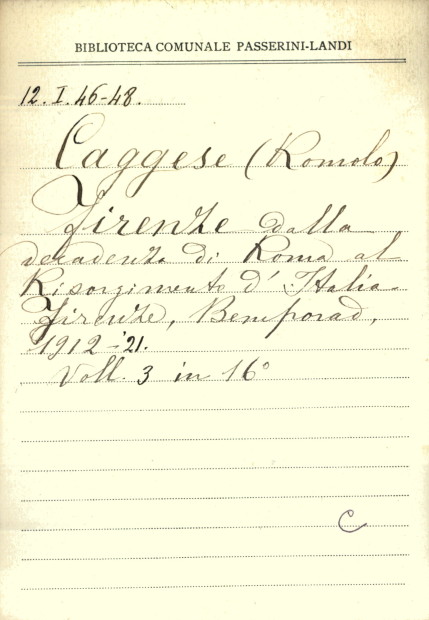 BIBLIOTECA COMUNALE PASSERINI-LANDI
12. I. 46-48.
Caggese (Romolo)
Firenze dalla
decadenza di Roma al
Risorgimento d'Italia.
Firenze, Bemporad,
1912-'21.
Voll. 3 in 16°
C